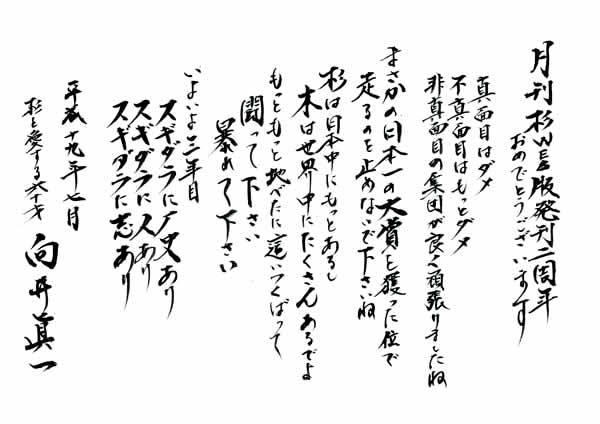 月刊杉WEB版発刊二周年
おめでとうございます
真面目はダメ
不真面目はもっとダメ
非真面目の集団が良く頑張りましたね
まさかの日本一の大賞を獲った位で
走るのを止めないで下さいね
杉は日本中にもっとあるし
木は世界中にたくさんあるでよ
もっともっと地べたに這いつくばって
闘って下さい
暴れて下さい
いよいよ三年目
スギダラに厂史あり
スギダラに人あり
スギダラに志あり
平成十九年七月
杉を愛する六十才
向井眞一